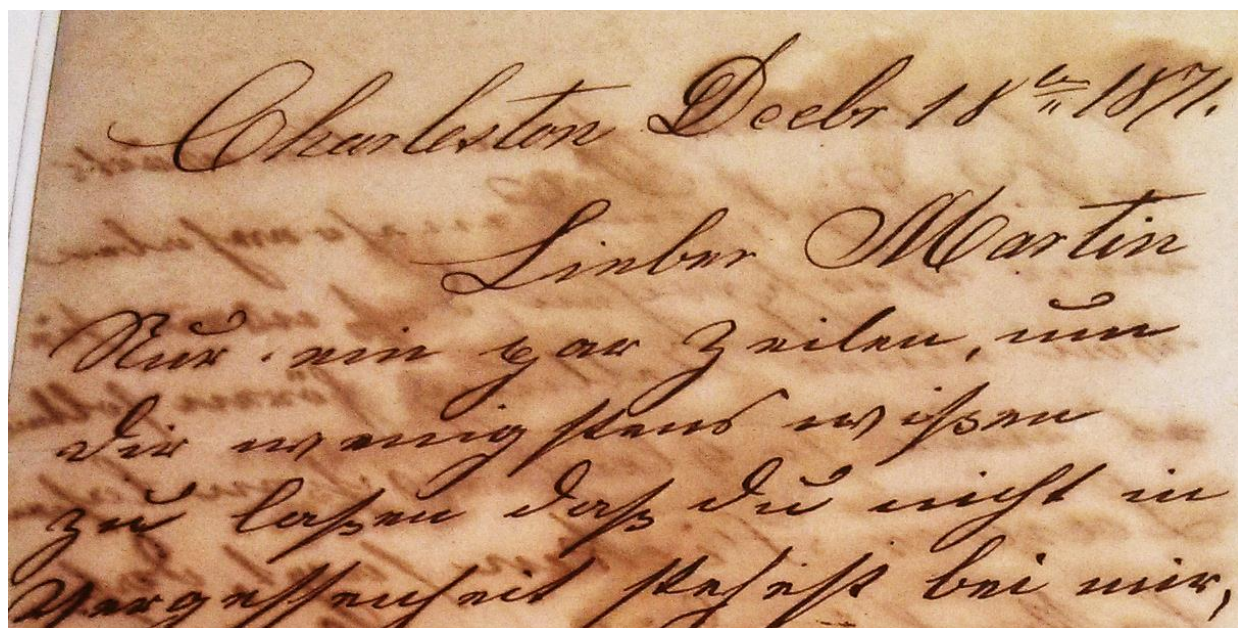 Charleston Decbr 18te 1871.
Lieber Martin
Nur ein par Zeilen, um
dir wenigstens wißen
zu laßen daß du nicht in
Vergessenheit stehest bei mir,